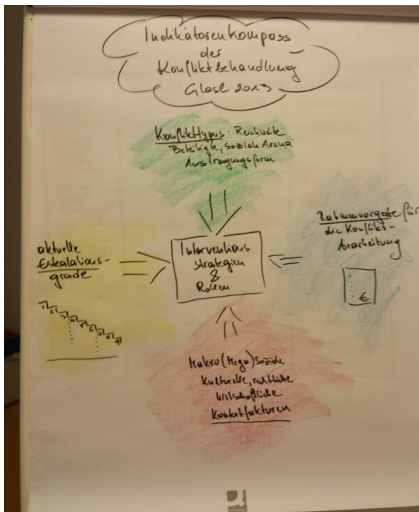 Indikatorenkompass
der
Konfliktbehandlung
Glasl 2013
Konflikttypus: Reichweite
Beteiligte, soziale Arena
Austragungsform
aktuelle
Eskalations-
grade
Interventions
strategien
&
Rollen
Rahmenvorgabe für
die Konflikt-
bearbeitung
€
Makro (Mega) Soziale
Kulturelle, rechtliche
wirtschaftliche
Kontextfaktoren